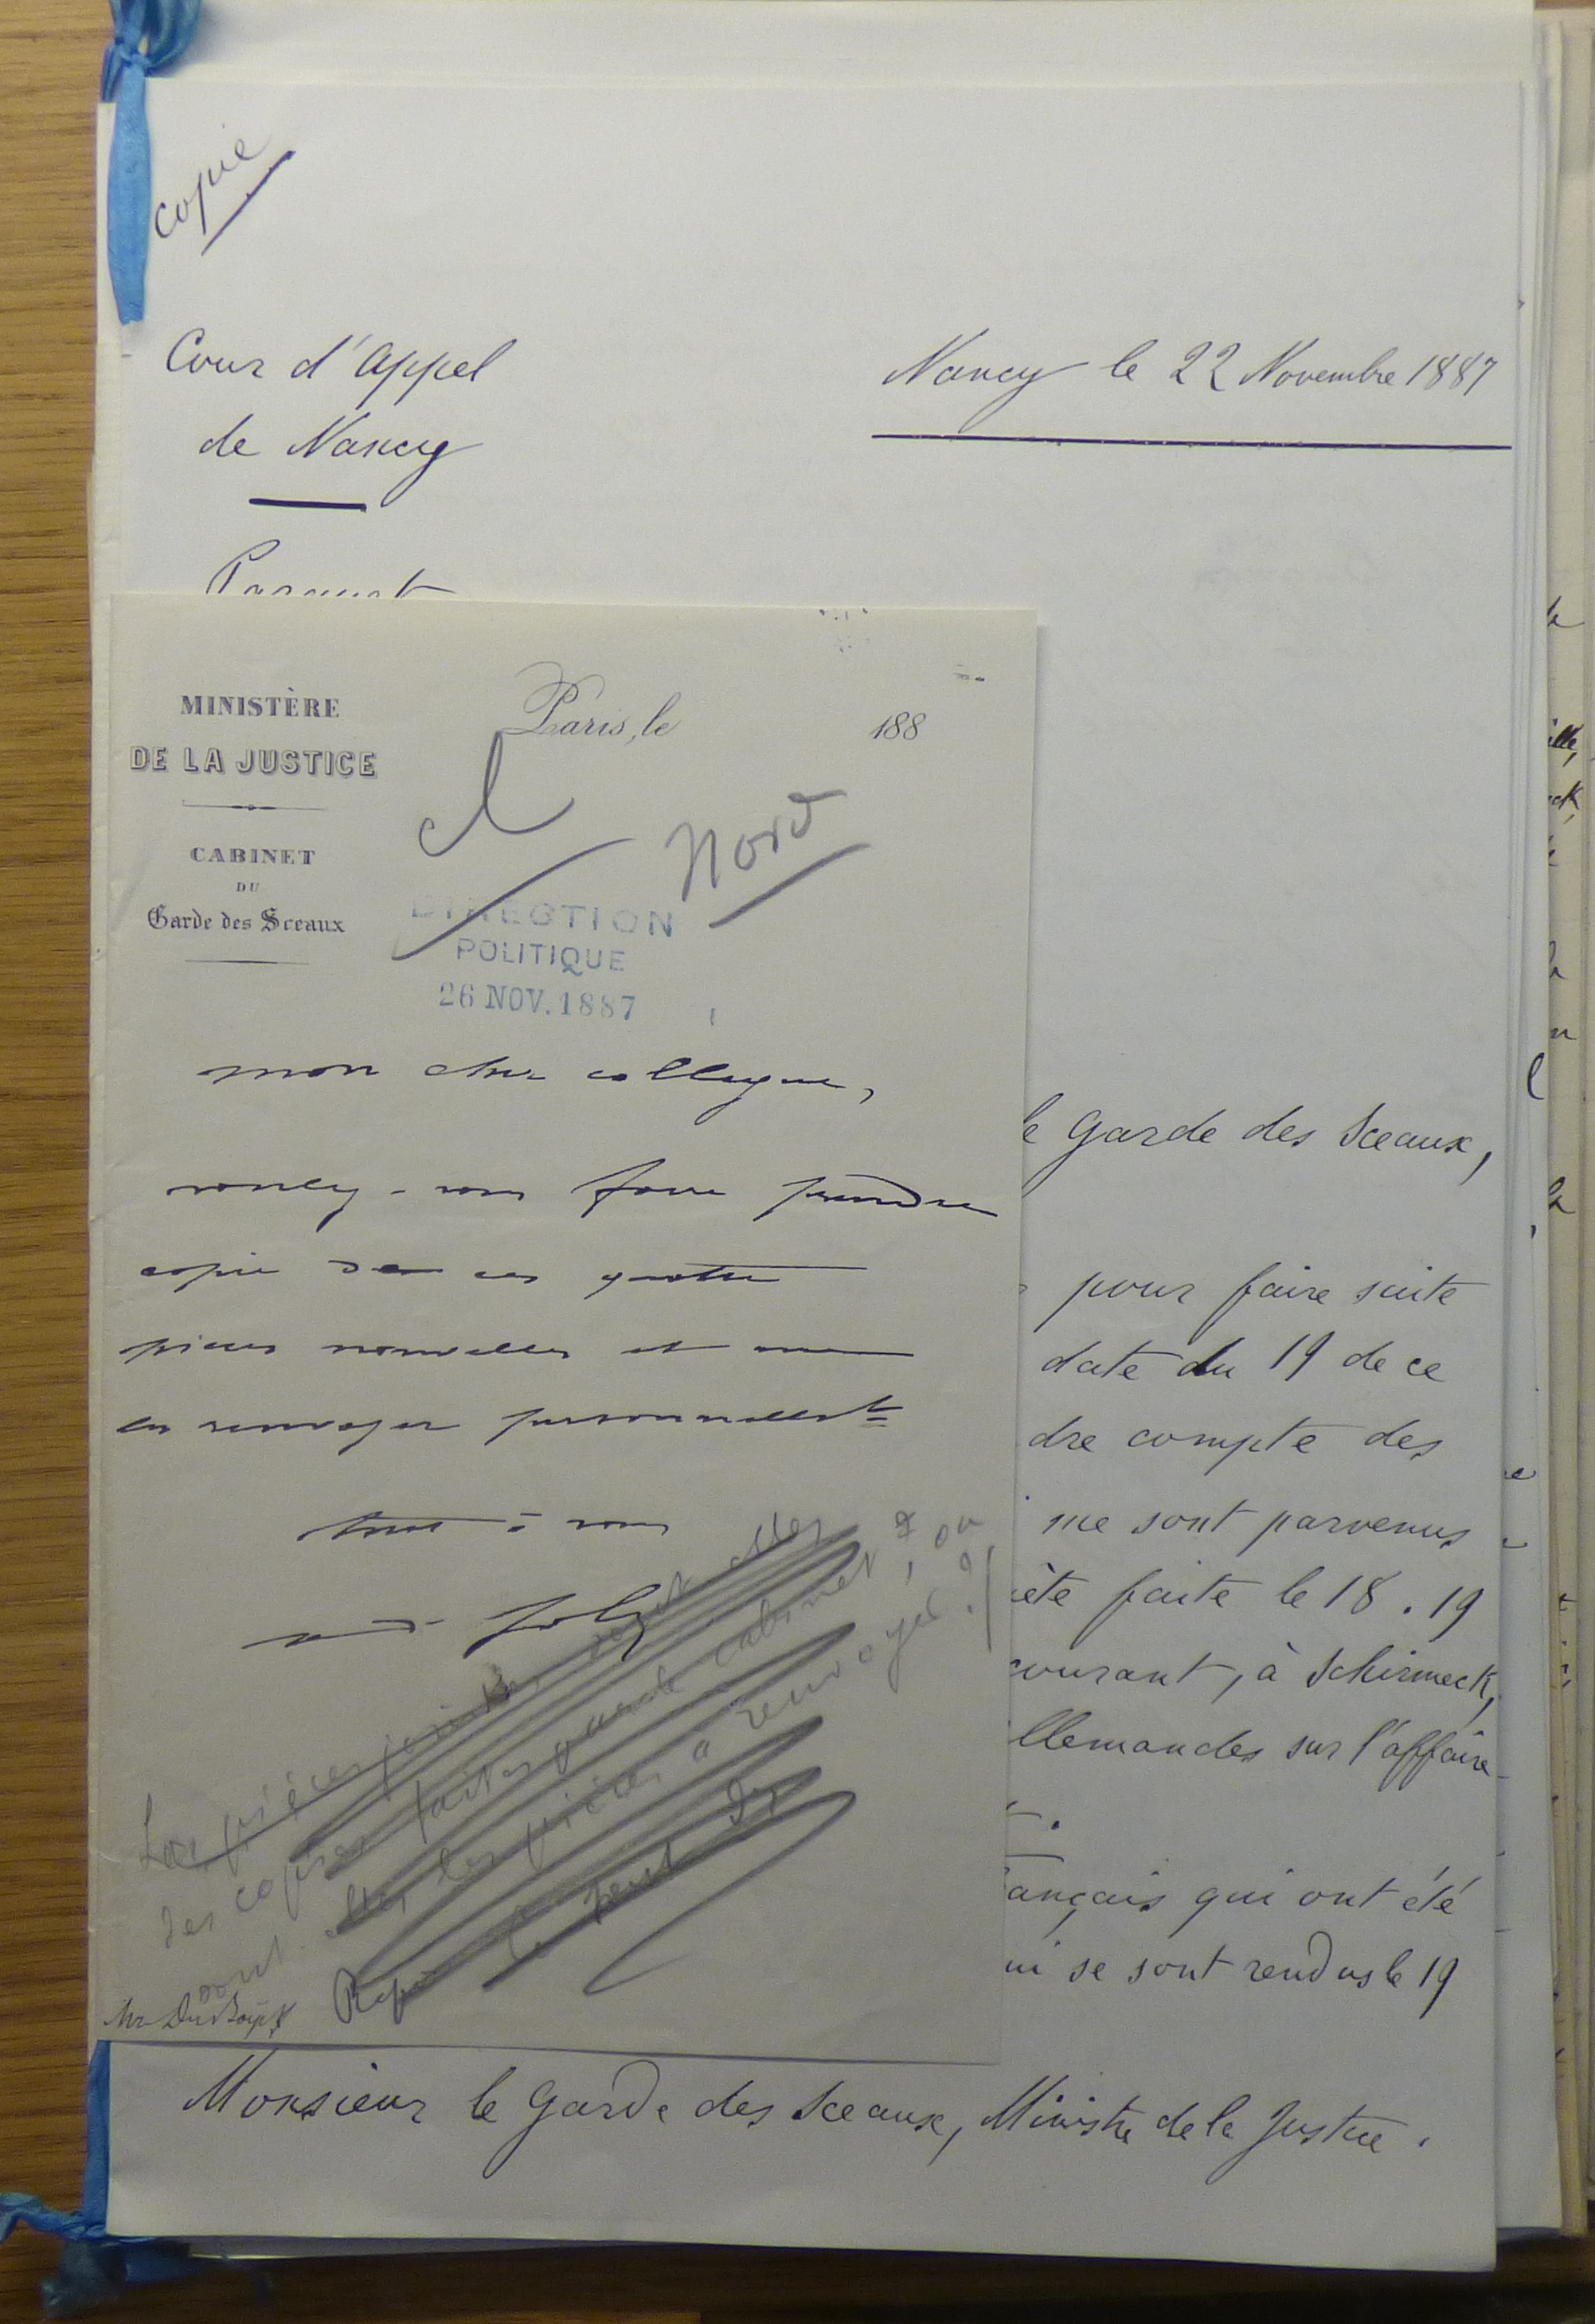 Copie
Cour d'Appel
de Nancy
Nancy le 22 Novembre 1887
Parquet
MINISTÈRE
DE LA JUSTICE
CABINET
DU
Garde des Sceaux
Paris, le 188
Nord
DIRECTION
POLITIQUE
26 NOV. 1887
mon cher collègue,
voulez-vous faire prendre
copie de ces quatre
pièces nouvelles et me
les renvoyer personnellemt
tout à vous
Les pièces jointes sont elles
des copies faites par le cabinet, ou
sont elles les pièces à renvoyer?
le garde des Sceaux,
pour faire suite
date du 19 de ce
dre compte des
me sont parvenus
ète faite le 18. 19
courant, à Schirmeck,
llemandes sur l'affaire
ançais qui ont été
ui se sont rendus le 19
Monsieur le Garde des Sceaux, Ministre de la Justice.